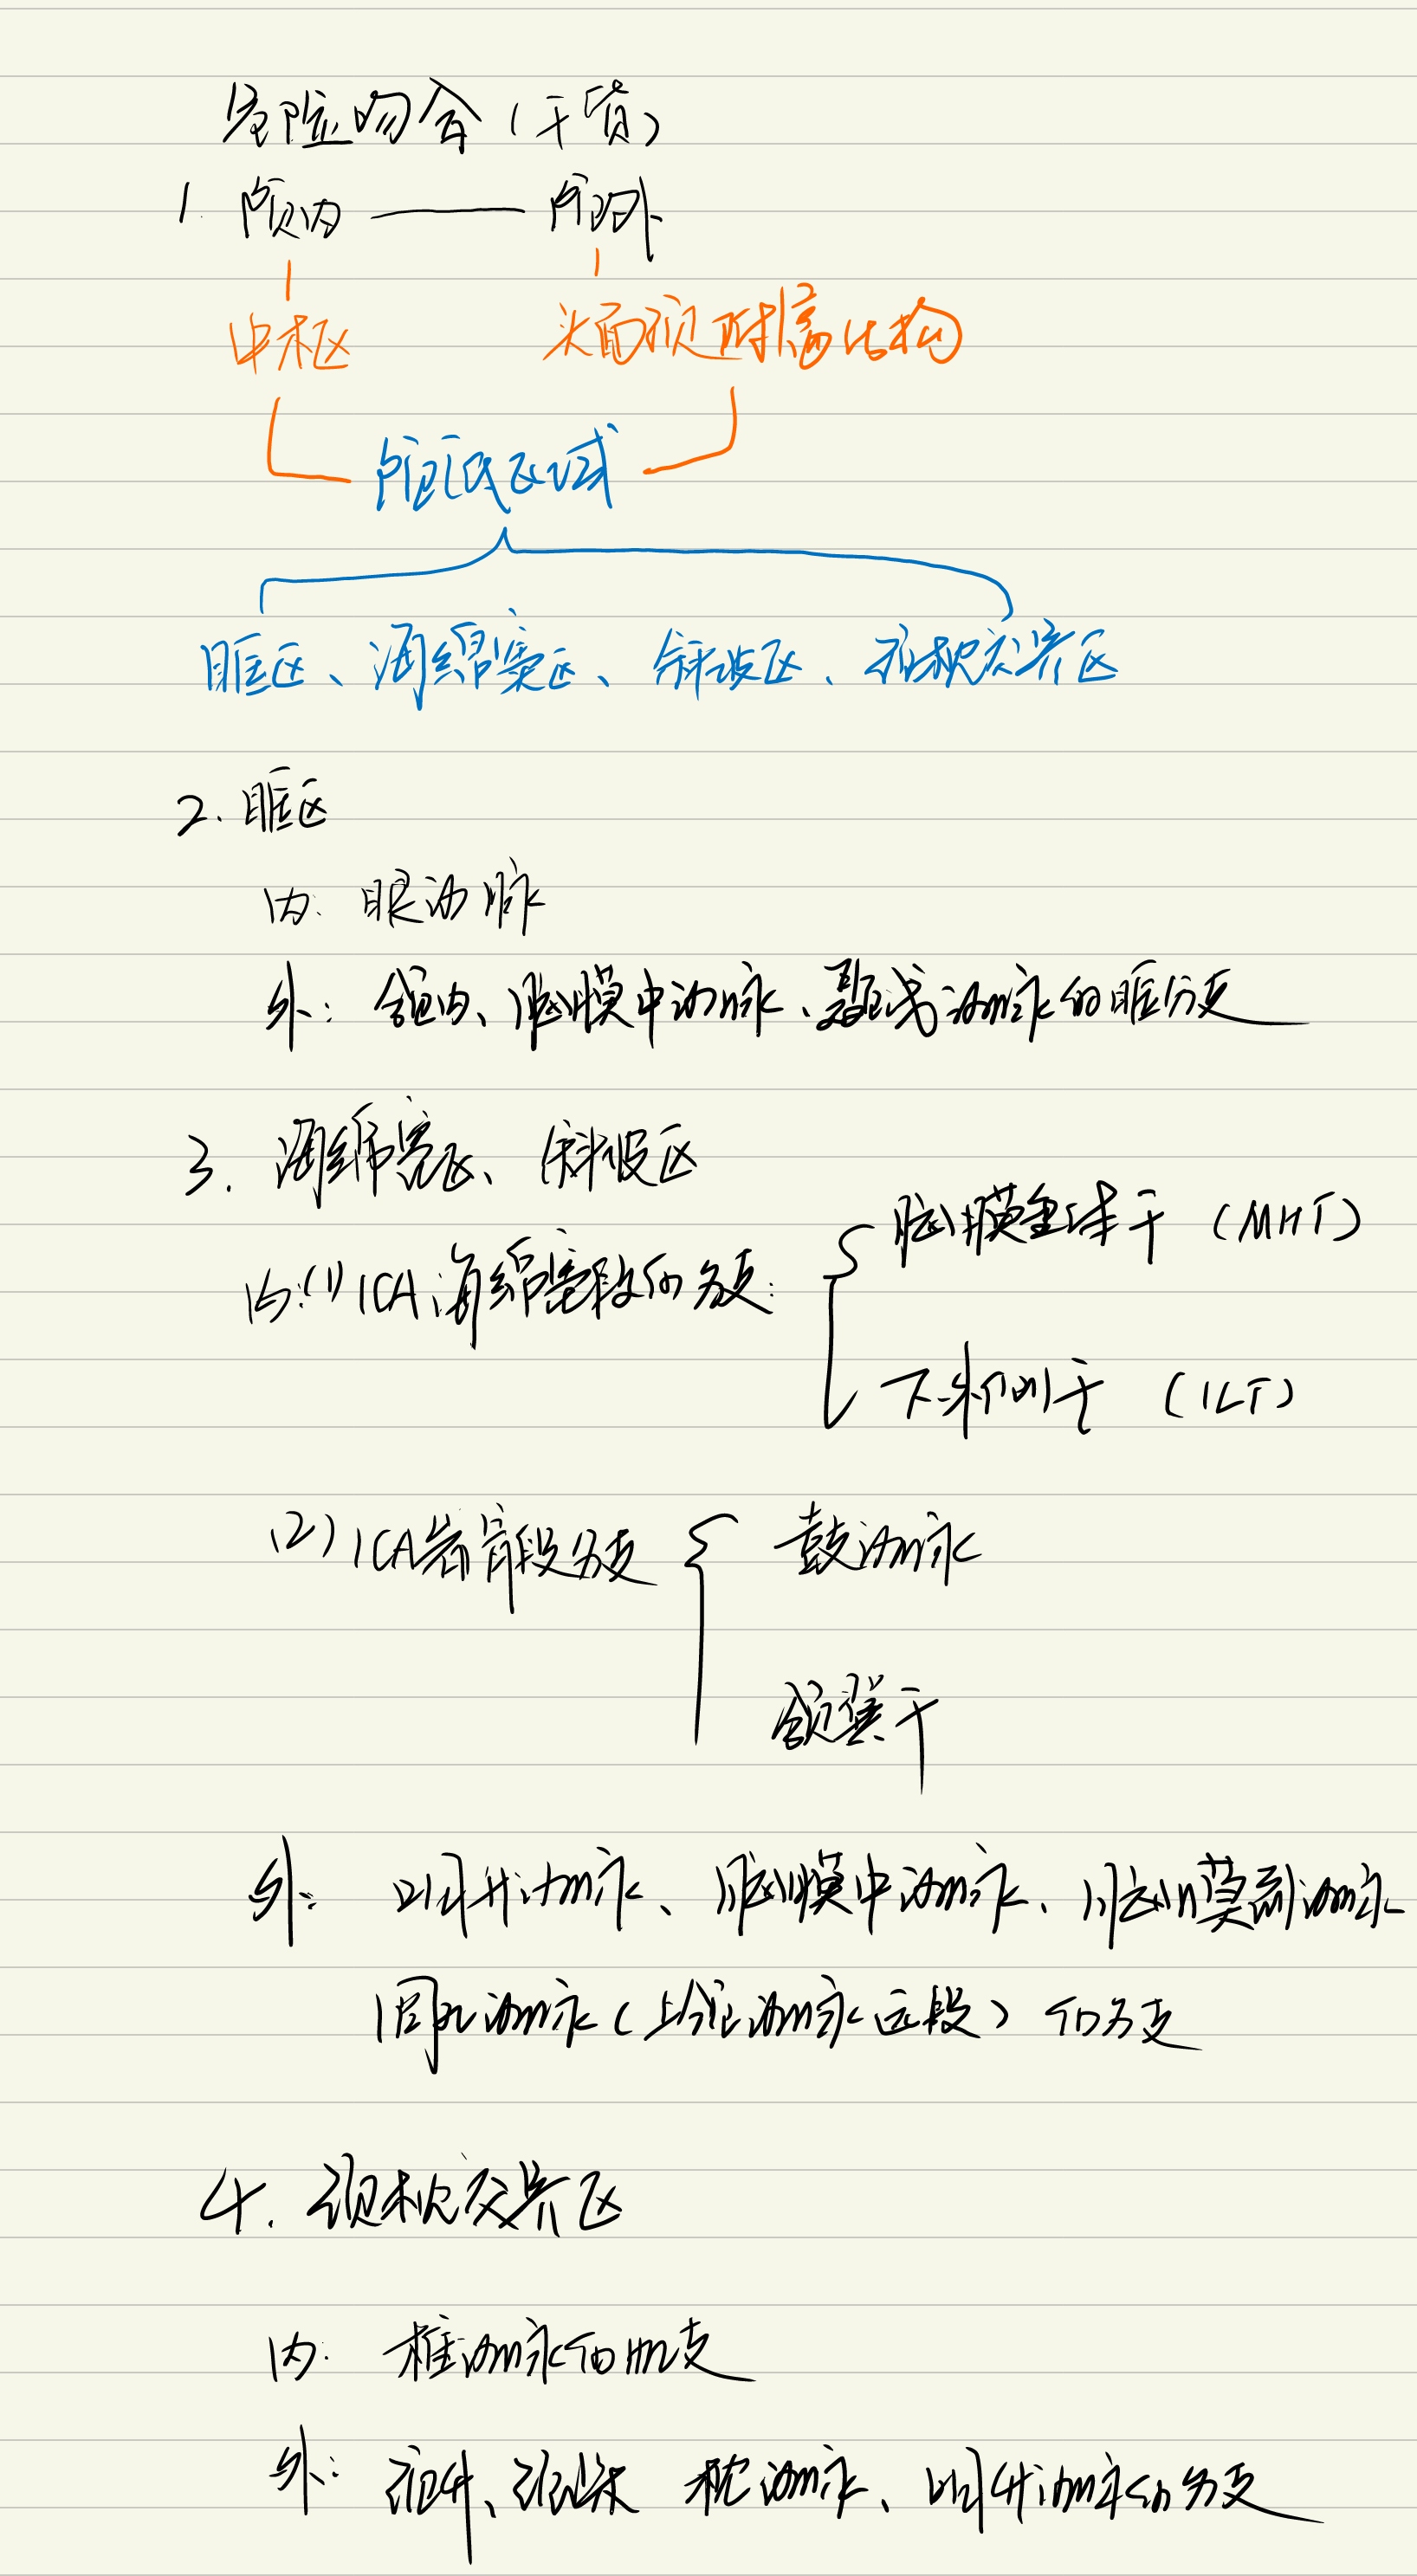 危险吻合（干货）
1. 颅内 —— 颅外
中枢 头面颈附属结构
颅底区域
眶区、海绵窦区、斜坡区、颈枕交界区
2. 眶区
内: 眼动脉
外: 颌内、脑膜中动脉、颞浅动脉的眶分支
3. 海绵窦区、斜坡区
内:(1) ICA海绵窦段的分支: 脑膜垂体干 (MHT)
下外侧干 (ILT)
(2) ICA岩骨段分支 鼓动脉
颌翼干
外: 咽升动脉、脑膜中动脉、脑膜副动脉
圆孔动脉（上颌动脉远段）的分支
4. 颈枕交界区
内: 椎动脉的肌支
外: 颈升、颈深 枕动脉、咽升动脉的分支